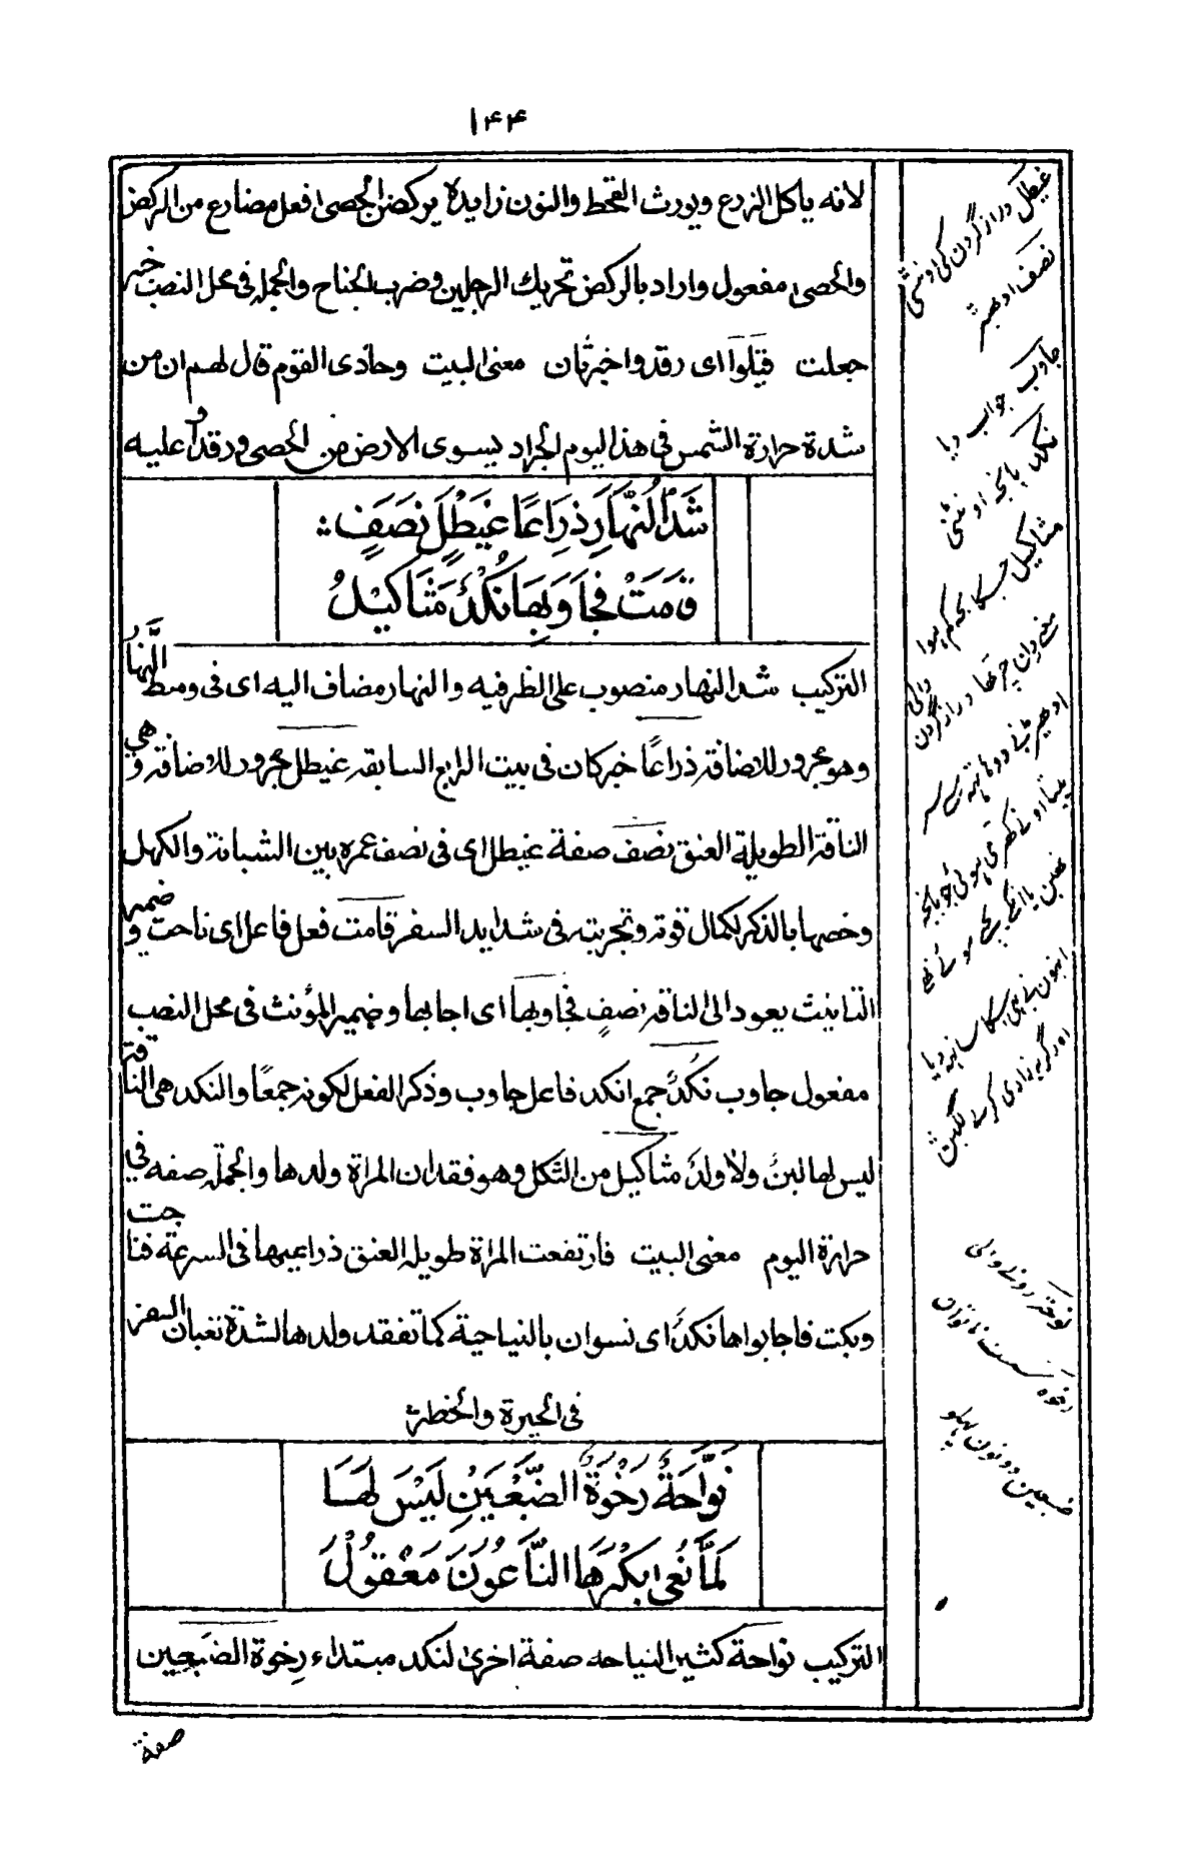 ۱۴۴
لانه ياكل الزرع ويورث القحط والنون زايدة يركض الحصى افعل مضارع من الركض
والحصى مفعول واراد بالركض تحريك الرجلين وضرب الجناح والجمله فى محل النصب خبر
جعلت قيلوا اى رقدوا خبر ثان معنى البيت وحاذى القوم قال لهم ان من
شدة حرارة الشمس فى هذا اليوم الجراد يسوى الارض من الحصى ورقدوا عليه
شَدَّ النَّهَارِ ذِرَاعًا عَيْطَلٍ نَصَفٍ
قَامَتْ فَجَاوَبَهَا نُكْدٌ مَثَاكِيْلُ
التركيب شد النهار منصوب على الظرفيه والنهار مضاف اليه اى فى وسط النَّهار
وهو مجرور للاضافة ذراعًا خبر كان فى بيت الرابع السابقه غيطل مجرور للاضافة وهى
الناقة الطويلة العنق نصف صفة غيطل اى فى نصف عمره بين الشبانة والكهل
وخصها بالذكر لكمال قوته وتجربته فى شدايد السفر قامت فعل فاعل اى ناحت وضمير
التانيث يعود الى الناقة نصفٍ فجاوبها اى اجابها وضمير المؤنث فى محل النصب
مفعول جاوب نُكدٌ جمع انكد فاعل جاوب وذكر الفعل لكونه جمعًا والنكد هى الناقة
ليس لها لبنٌ ولا ولدٌ مثاكيل من الثكل وهو فقدان المراة ولدها والجملة صفه فى
حرارة اليوم معنى البيت فارتفعت المراة طويله العنق ذراعيها فى السرعة فناجت
وبكت فاجابواها نكدٌ اى نسوان بالنياحية كما تفقد ولدها لشدة تعبان السفر
فى الحيرة والخطر
نَوَّاحَةٌ رَخْوَةُ الضَّبْعَيْنِ لَيْسَ لَهَا
لَمَّا نَعٰى بِكْرَهَا النَّاعُوْنَ مَعْقُوْلُ
التركيب نواحة كثير النياحه صفة اخرى لنكد مبتداء رخوة الضبعين
صفة
غیطل دراز گردن کی اونٹنی
نصف ادھیڑ
جاوب جواب دیا
نکد بانجھ اونٹنی
مثاکیل جسکا بچہ گم ہوا
نوحہ رونے والی
رخوہ سست ناتوان
ضبعین دونون پہلو